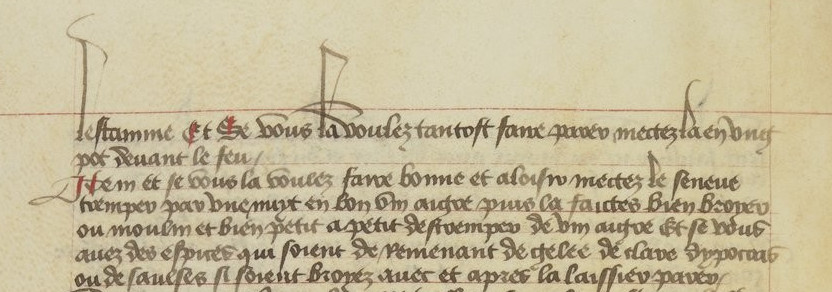 lestamine Et Se vous la voulez tantost faire parer mectez la en ung
pot devant le feu /
Item et se vous la voulez faire bonne et a loisir mectez le seneve
tremper par une nuyt en bon vin aigre puis la faictes bien broyer
ou moulin et bien petit a petit destremper de vin aigre Et se vous
avez des espices qui soient de Remenant de gelee de clare dypocras
ou de saulses si soient broyez avec et apres la laissier parer /